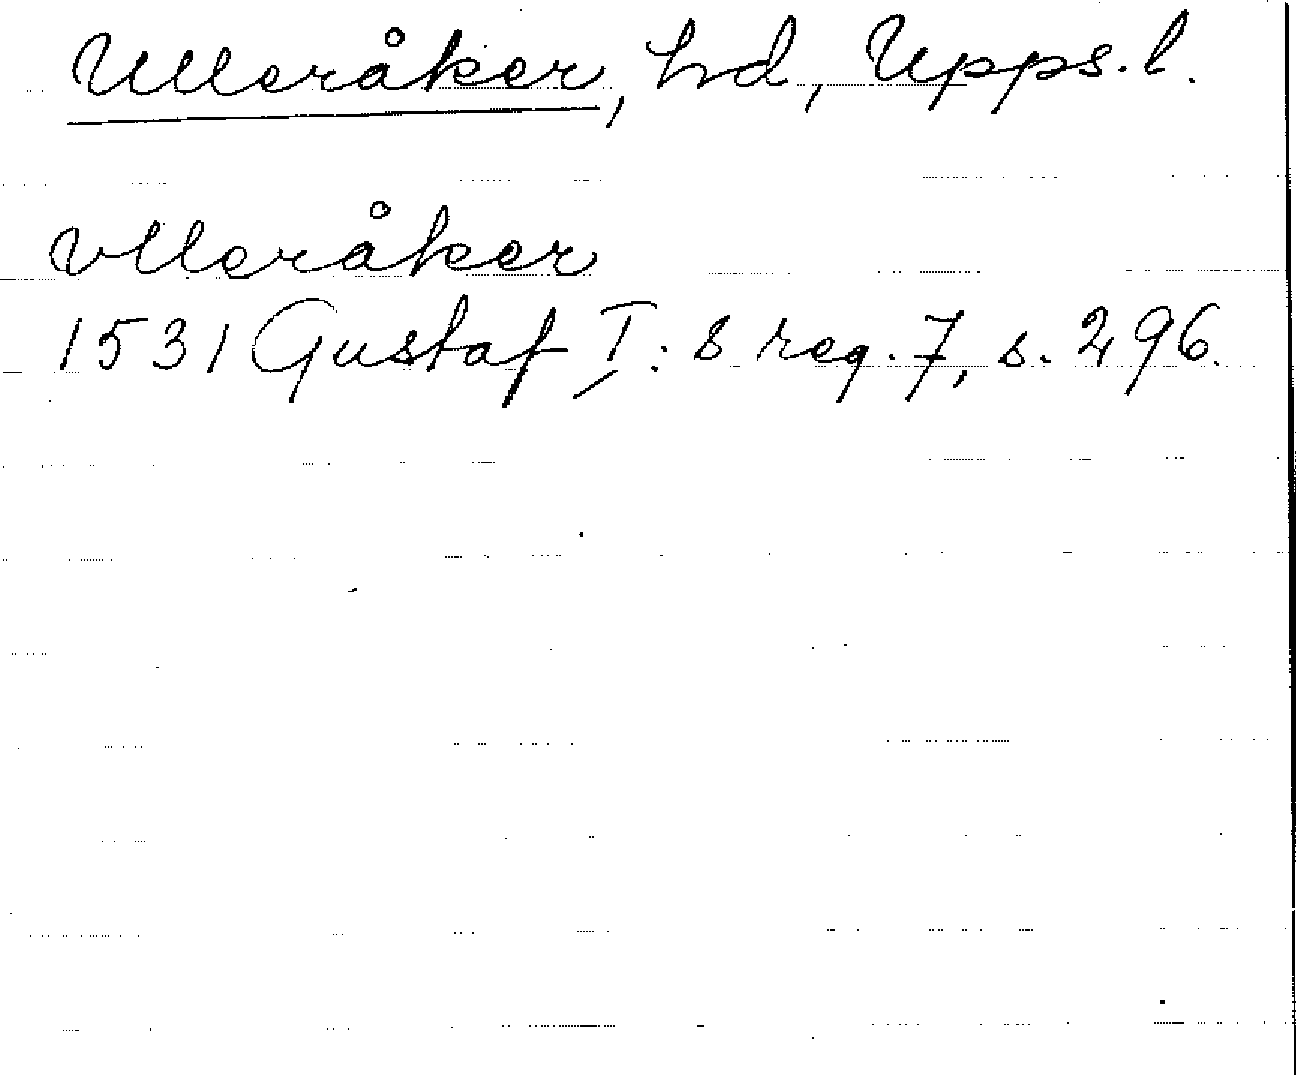 Ulleråker, hd, Upps. l.
vlleråker
1531 Gustaf I: s reg. 7, s. 296.